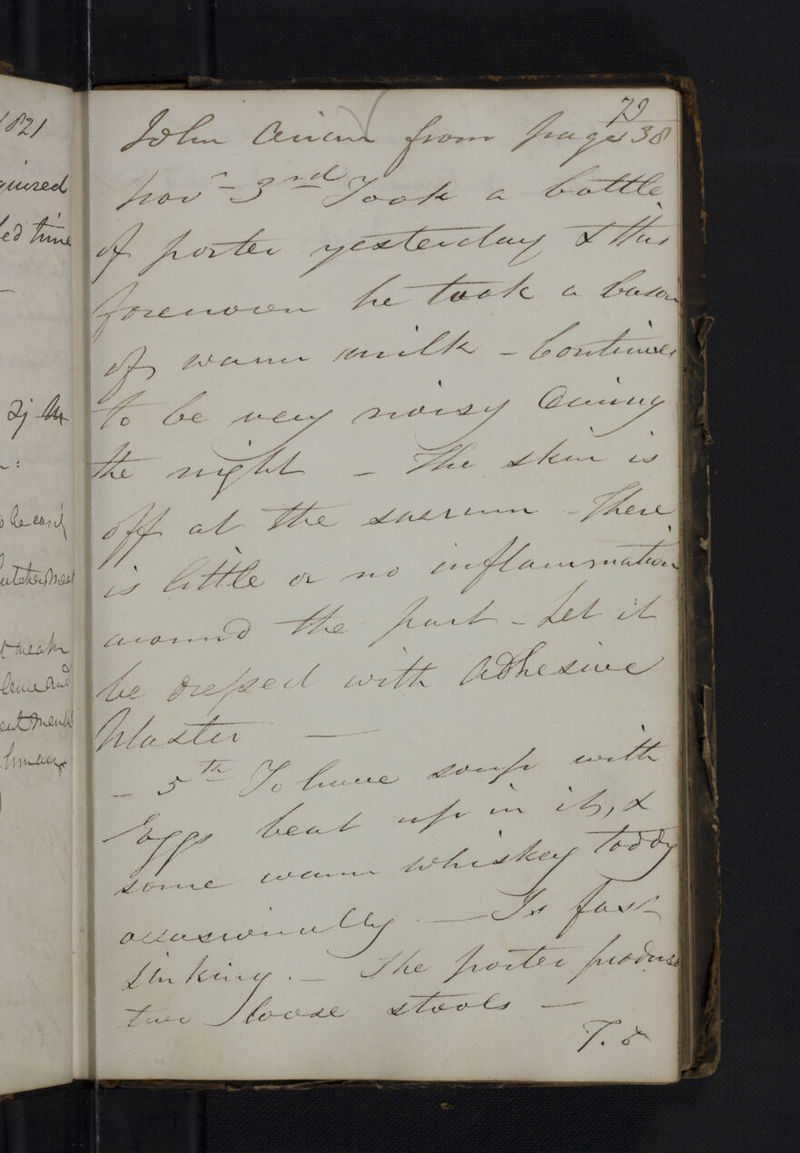 1821
quired
ed time
79
John from page 38
Novr 3rd Took a bottle
of porter yesterday & this
forenoon he took a bason
of warm milk – Continues
to be very noisy during
the night – The skin is
off at the sacrum – There
is little or no inflammation
around the part – Let it
be dressed with Adhesive
Plaster —
– 5th To have soup with
Eggs beat up in it, &
some warm whiskey toddy
occasionally — Is fast
sinking. – The porter produced
two loose stools –